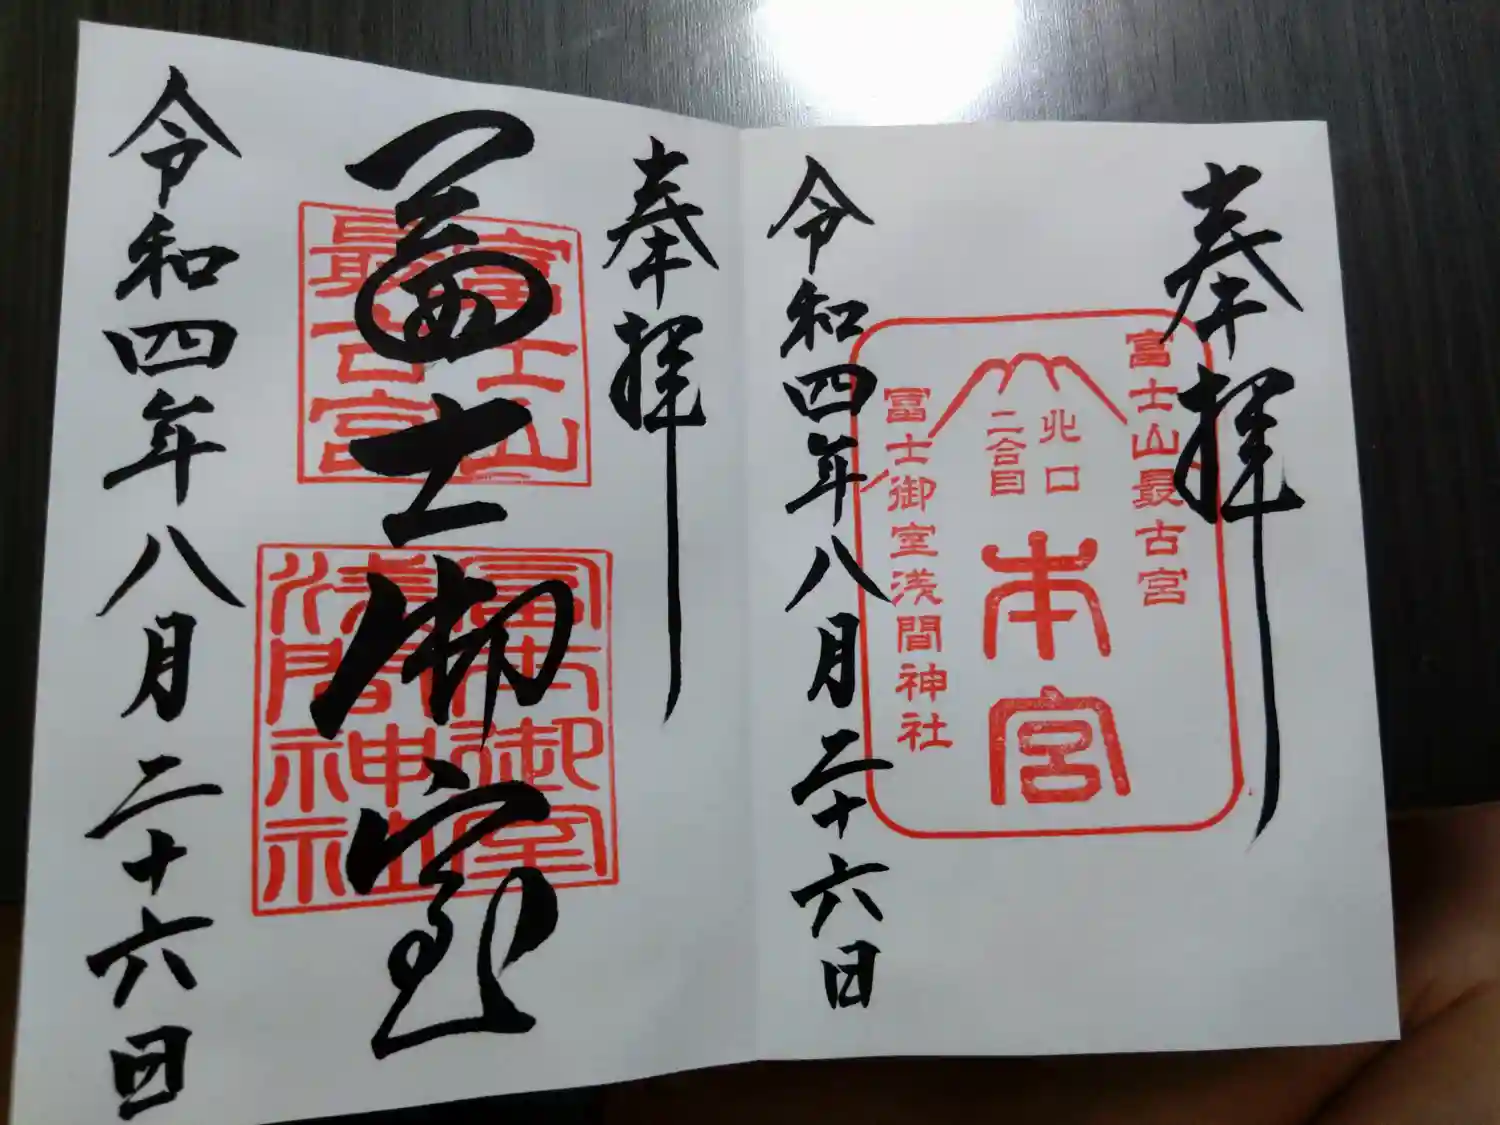 奉拝
富士山最古宮
北口
二合目
本宮
富士御室浅間神社
令和四年八月二十六日
奉拝
富士山
最古宮
富士御室
冨士御室
浅間神社
令和四年八月二十六日